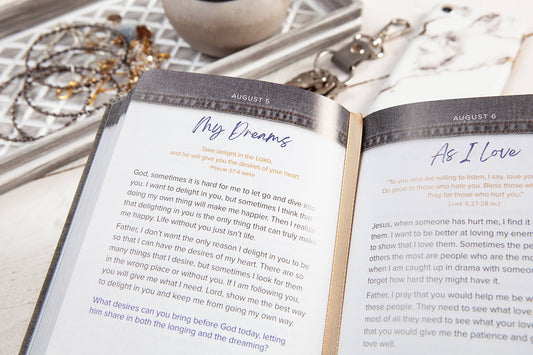 AUGUST 5
My Dreams
Take delight in the LORD,
and he will give you the desires of your heart.
PSALM 37:4 NRSV
God, sometimes it is hard for me to let go and dive into
you. I want to delight in you, but sometimes I think that
doing my own thing will make me happier. Then I realize
that delighting in you is the only thing that can truly make
me happy. Life without you just isn't life.
Father, I don't want the only reason I delight in you to be
so that I can have the desires of my heart. There are so
many things that I desire, but sometimes I look for them
in the wrong place or without you. If I am following you,
you will give me what I need. Lord, show me the best way
to delight in you and keep me from going my own way.
What desires can you bring before God today, letting
him share in both the longing and the dreaming?
AUGUST 6
As I Love
"To you who are willing to listen, I say, love your
Do good to those who hate you. Bless those who
Pray for those who hurt you."
LUKE 6:27-28 NLT
Jesus, when someone has hurt me, I find it
them. I want to be better at loving my enem
to show that I love them. Sometimes the pe
others the most are people who are the mo
when I am caught up in drama with someon
forget how hard they might have it.
Father, I pray that you would help me be w
these people. They need to see what love
most of all they need to see what your love
that you would give me the patience and g
love well.